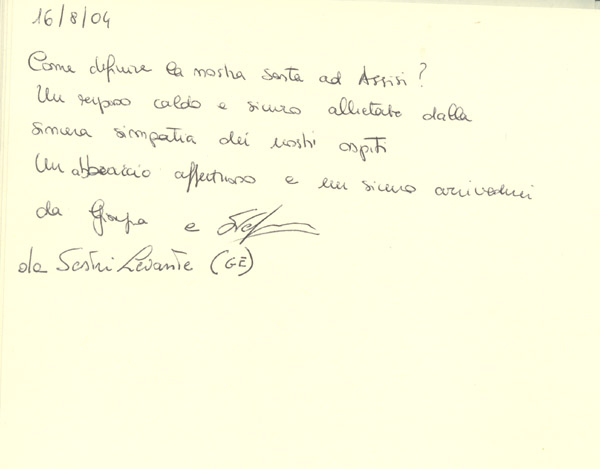 16/8/04
Come definire la nostra sosta ad Assisi?
Un caldo e sicuro allietato dalla
sincera simpatia dei nostri ospiti
Un abbraccio affettuoso e un sicuro arrivederci
da e
da Sestri Levante (GE)